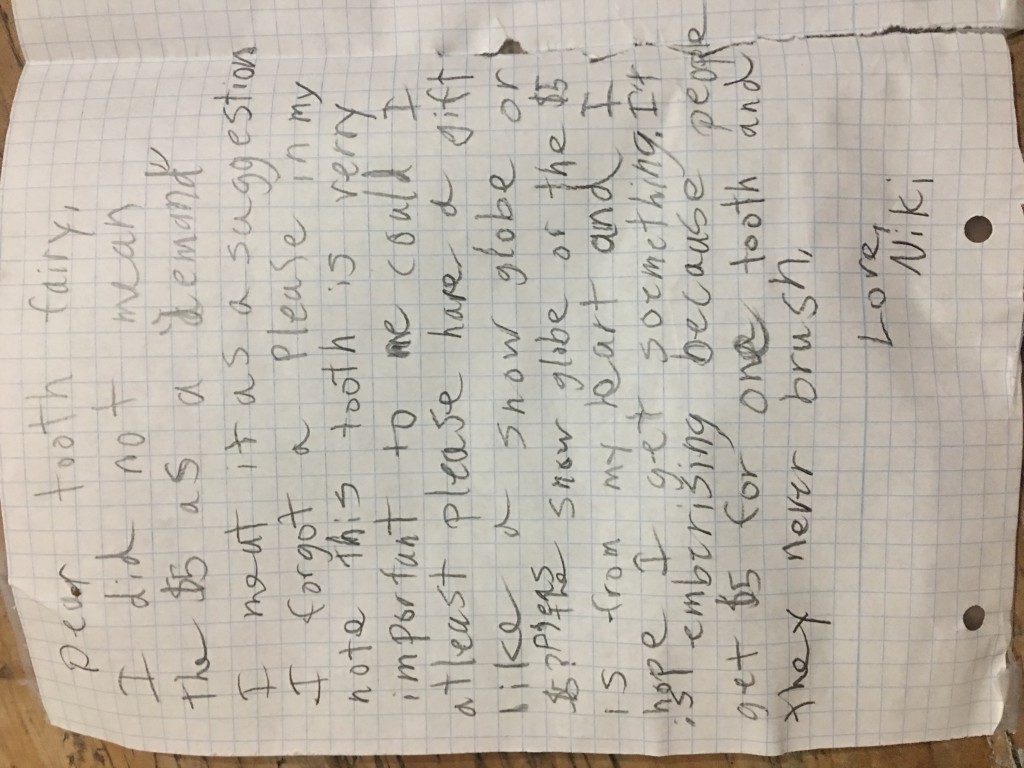 Dear tooth fairy,
I did not mean
the $5 as a "demand"
I meut it as a suggestion
I forgot a please in my
note this tooth is verry
important to me could I
atleast please have a gift
like a snow globe or
$5? the snow glibe or the $5
is from my heart and I
hope I get soemething. It
is emberising because people
get $5 for one tooth and
they never brush,
Love,
Niki